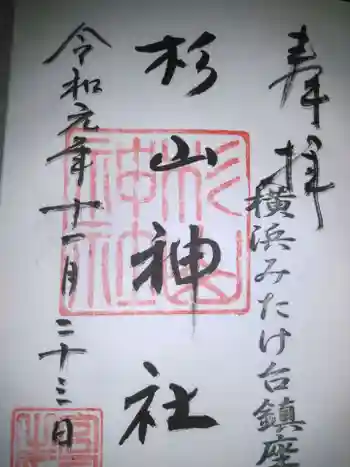 奉拝
横浜みたけ台鎮座
杉山神社
杉山神社
令和元年十一月二十三日